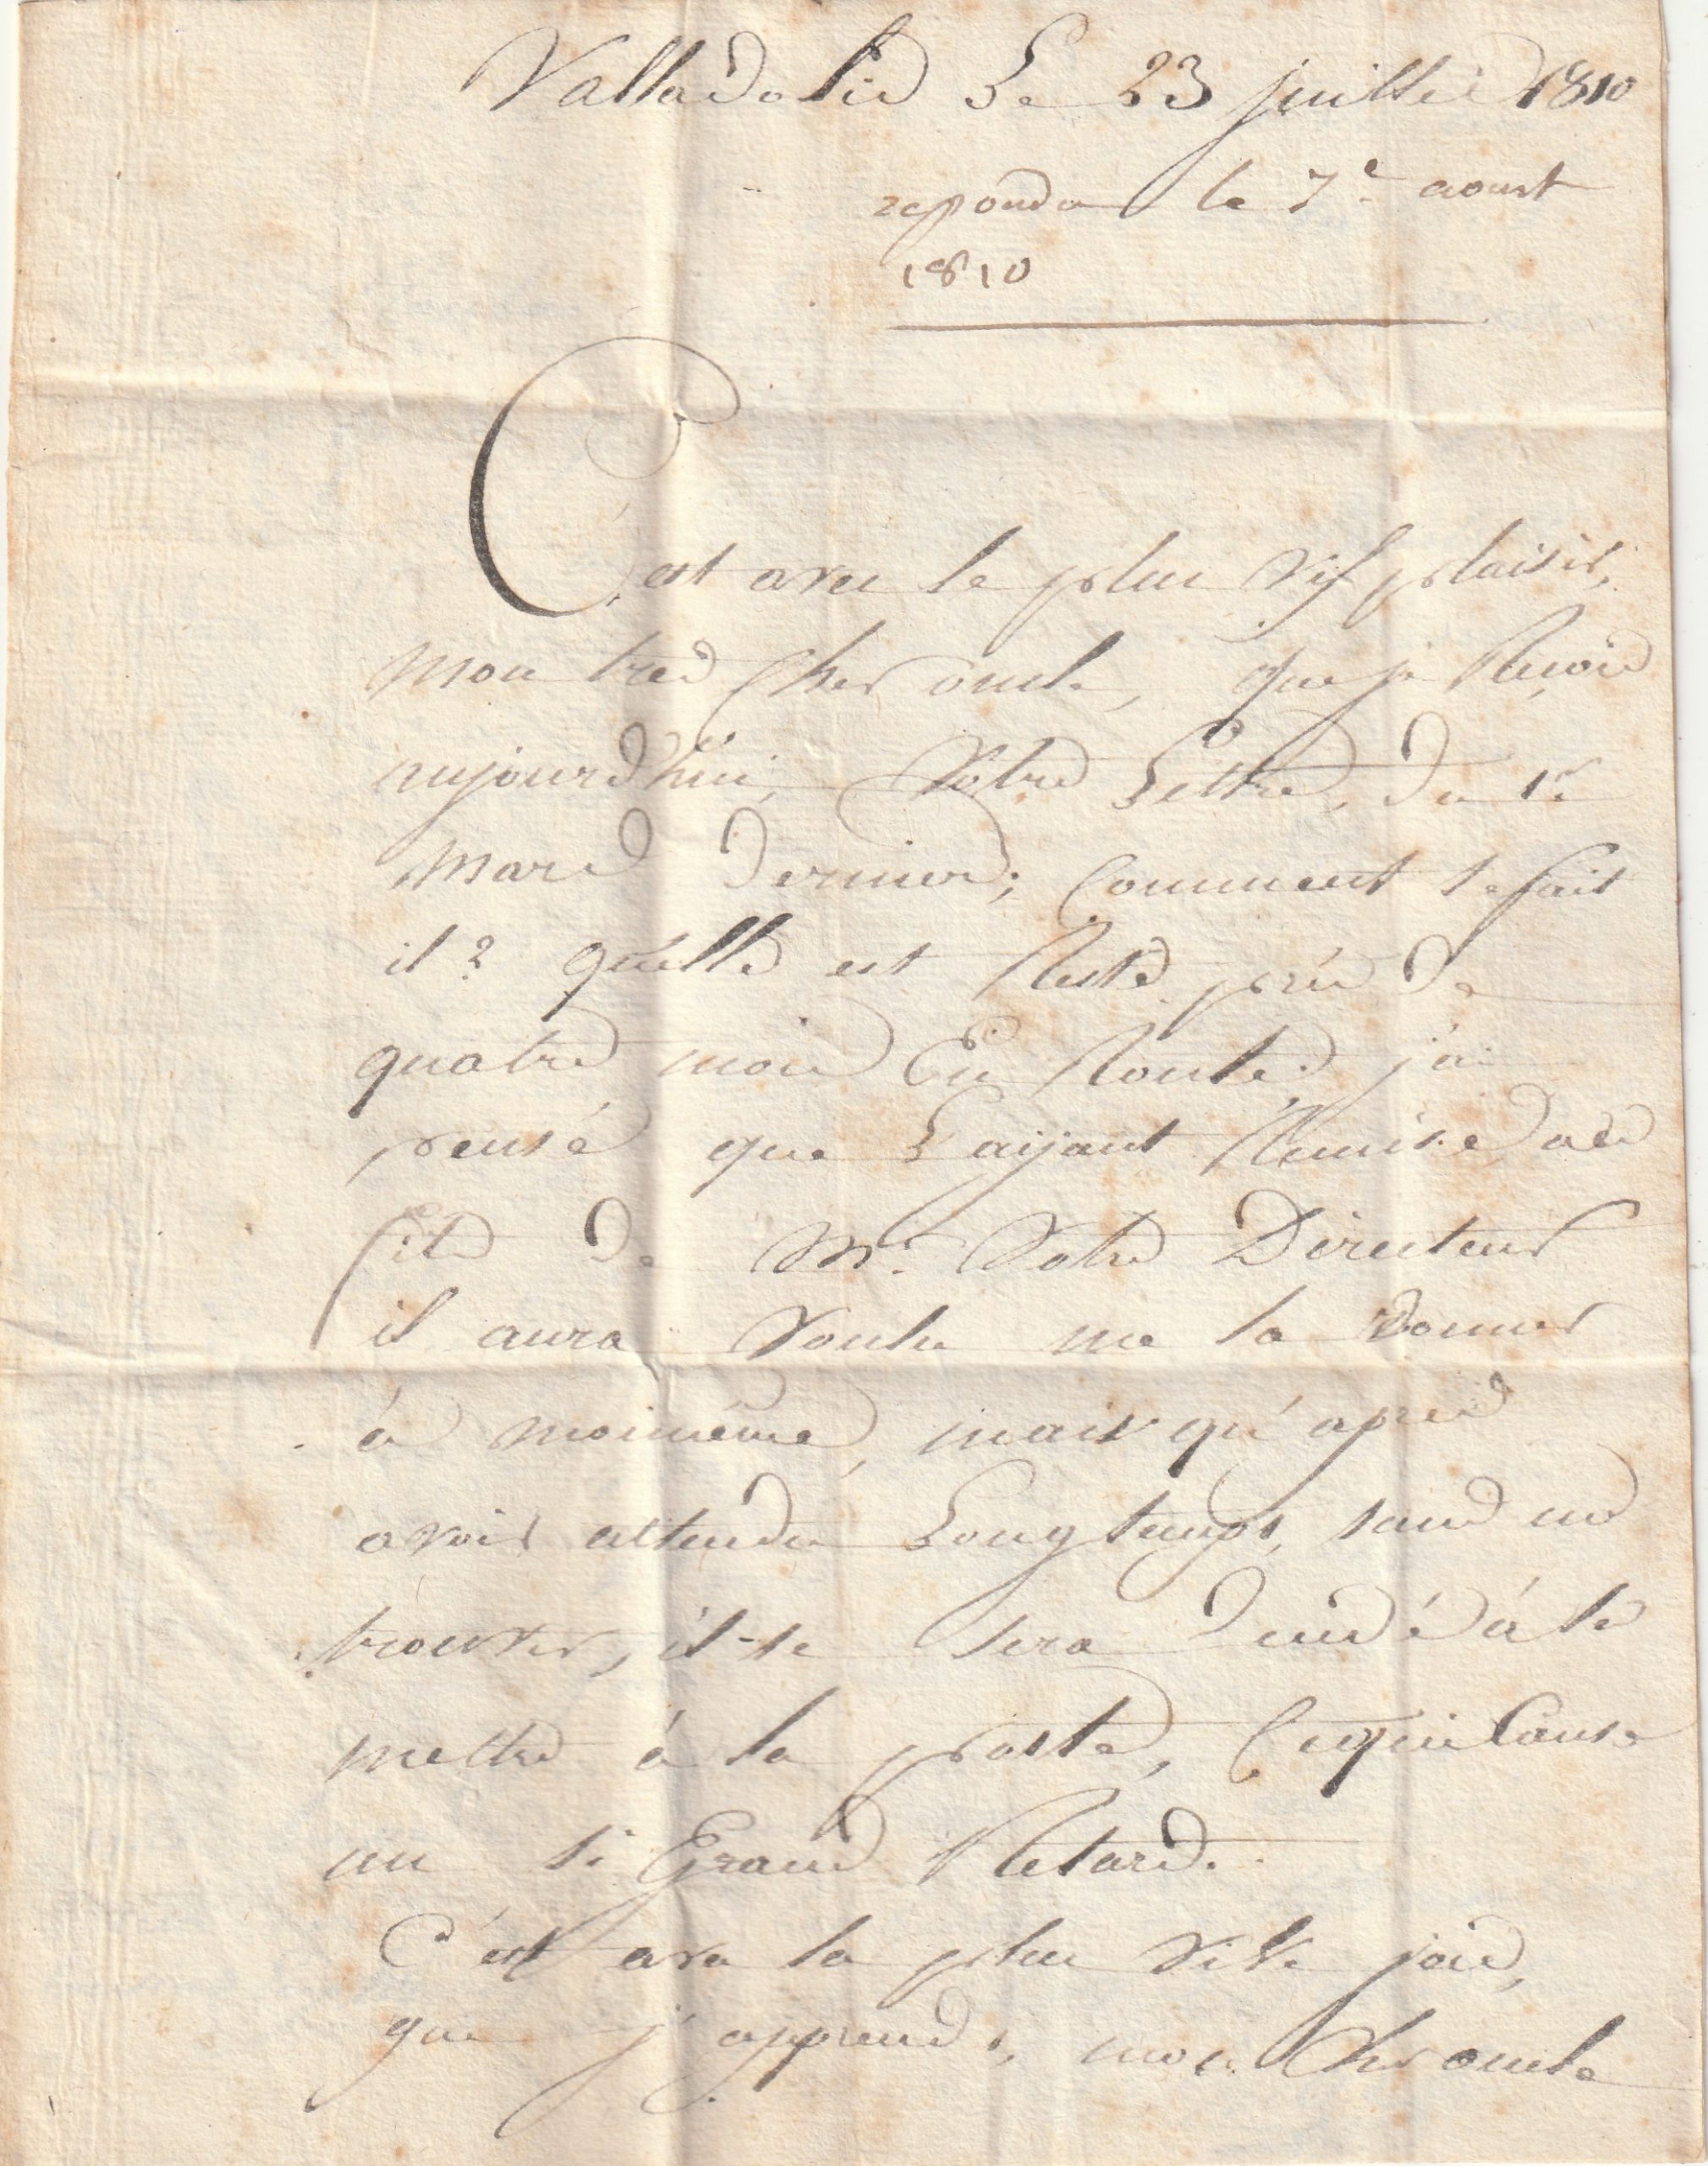 Valladolid Le 23 juillet 1810
repondu le 7e aoust
1810
C'est avec le plus vif plaisir,
mon tres Cher oncle, que je Reçois
aujourd'hui, Votre Lettre, du 1er
Mars Dernier; Comment se fait
il? qu'elle est Resté près de
quatre mois En Route. j'ai
pensé que L'aijant Remise au
fils de Mr. Votre Directeur
il aura Voulu me la Donner
à moimême, mais qu'après
avoir attendu Longtemps, sans me
trouver, il-se sera à la
mettre à la poste, Cequi Cause
un si Grand Retard.
C'est avec la plus vive joie,
que j'apprends, mon Cher oncle